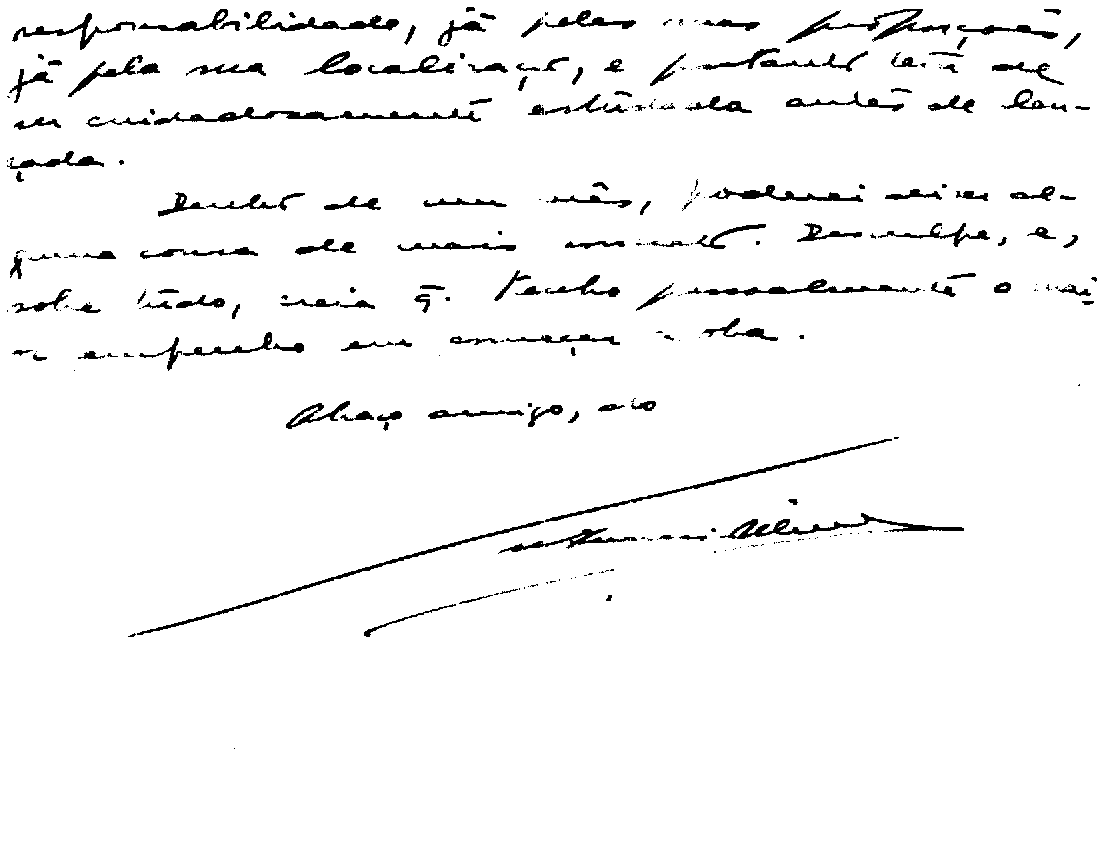 responsabilidade, já pelas suas proporções,
já pela sua localização, e portanto terá de
ser cuidadosamente estudada antes de lan-
çada.
Dentro de um mês, poderei dizer al-
guma cousa de mais concreto. Desculpe, e,
sobre tudo, creia q. tenho pessoalmente o mai-
or empenho em começar a obra.
Abraço amigo, do